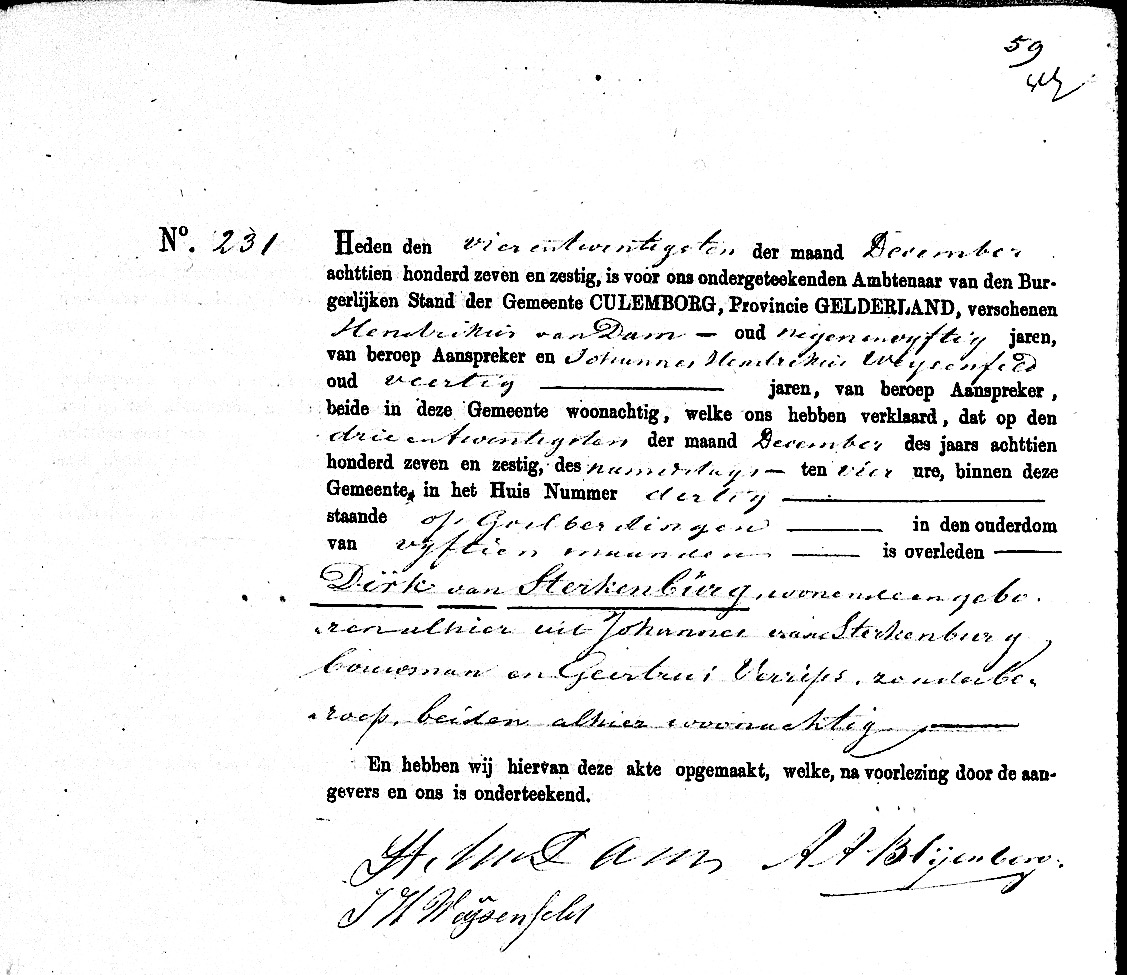 59
No. 231
Heden den vierentwintigsten der maand December
achttien honderd zeven en zestig, is voor ons ondergeteekenden Ambtenaar van den Bur-
gerlijken Stand der Gemeente CULEMBORG, Provincie GELDERLAND, verschenen
Hendrikus van Dam — oud negenenvyftig jaren,
van beroep Aanspreker en Johannes Hendrikus Weysenfeld
oud veertig jaren, van beroep Aanspreker,
beide in deze Gemeente woonachtig, welke ons hebben verklaard, dat op den
drieentwintigsten der maand December des jaars achttien
honderd zeven en zestig, des namiddags — ten vier ure, binnen deze
Gemeente, in het Huis Nummer dertig
staande op Goilberdingen in den ouderdom
van vyftien maanden is overleden
Dirk van Sterkenburg, wonende en gebo-
ren alhier uit Johannes van Sterkenburg,
bouwman en Geertrui Verrips, zonder be-
roep, beiden alhier woonachtig
En hebben wij hiervan deze akte opgemaakt, welke, na voorlezing door de aan-
gevers en ons is onderteekend.
H. van Dam A A Blijenberg.
J H Weijsenfeld